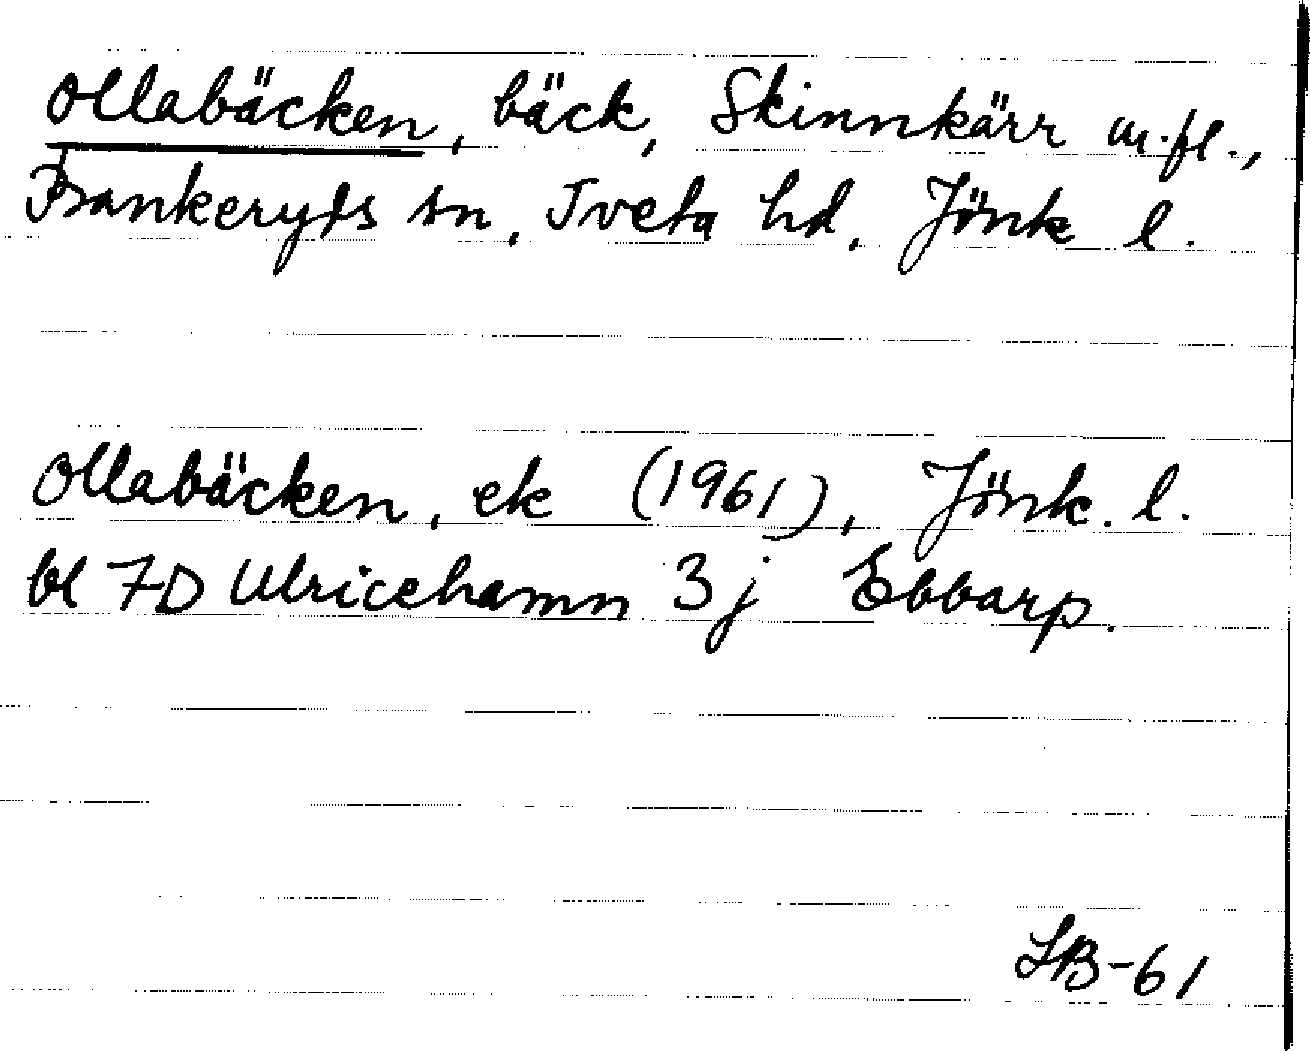 Ollabäcken, bäck, Skinnkärr m.fl.,
Bankeryds sn, Tveta hd, Jönk l.
Ollabäcken, ek (1961), Jönk. l.
bl 7D Ulricehamn 3j Ebbarp.
SB-61